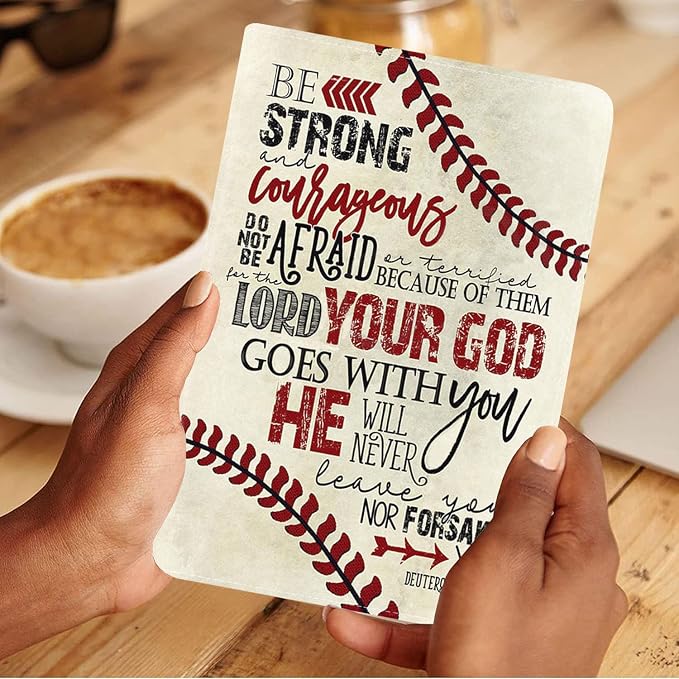 BE
STRONG
and
courageous
DO NOT BE AFRAID or terrified
BECAUSE OF THEM
for the LORD YOUR GOD
GOES WITH you
HE WILL NEVER
leave you
NOR FORSAK
DEUTER